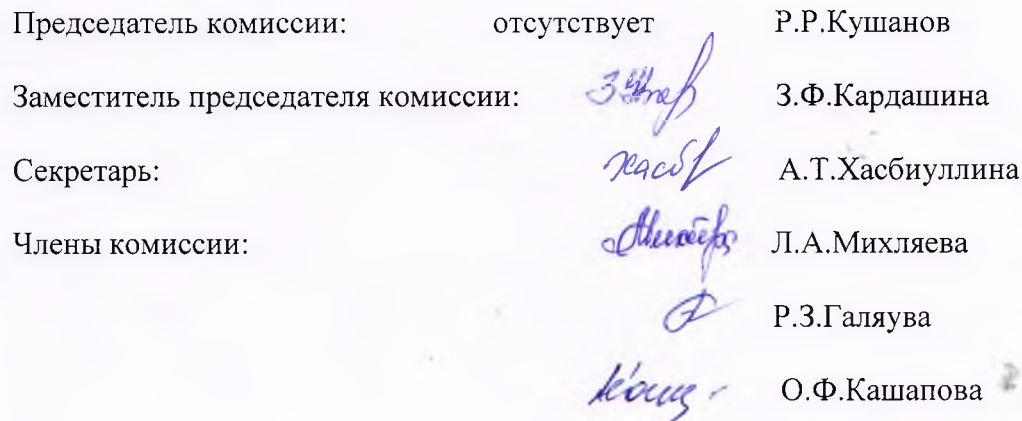 Председатель комиссии: отсутствует Р.Р.Кушанов
Заместитель председателя комиссии: З.Ф.Кардашина
Секретарь: Хасб А.Т.Хасбиуллина
Члены комиссии: Л.А.Михляева
Р.З.Галяува
О.Ф.Кашапова